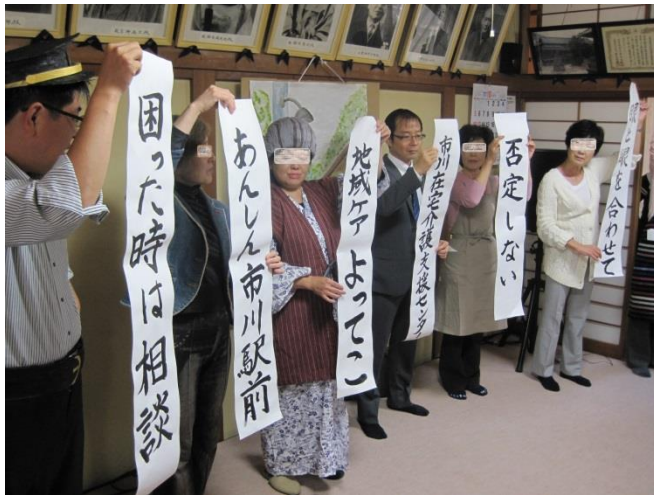 困った時は相談
あんしん市川駅前
地域ケアよってこ
市川在宅介護支援センター
否定しない
を合わせて